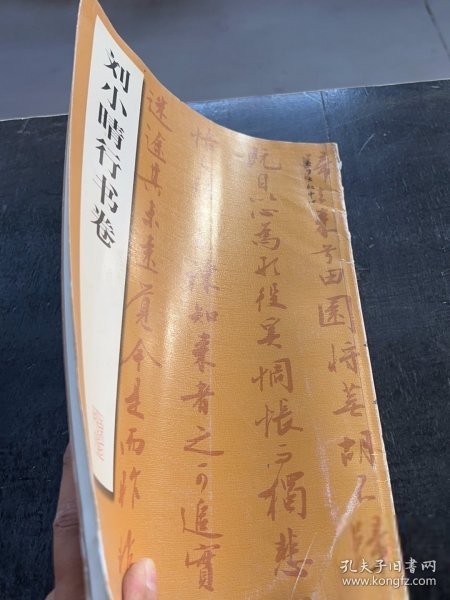 刘小晴行书卷
来兮田園将蕪胡不歸
既自以心為形役奚惆悵而獨悲
悟
諫知來者之可追實
迷途其未遠覺今是而昨
孔夫子旧书网
www.kongfz.com